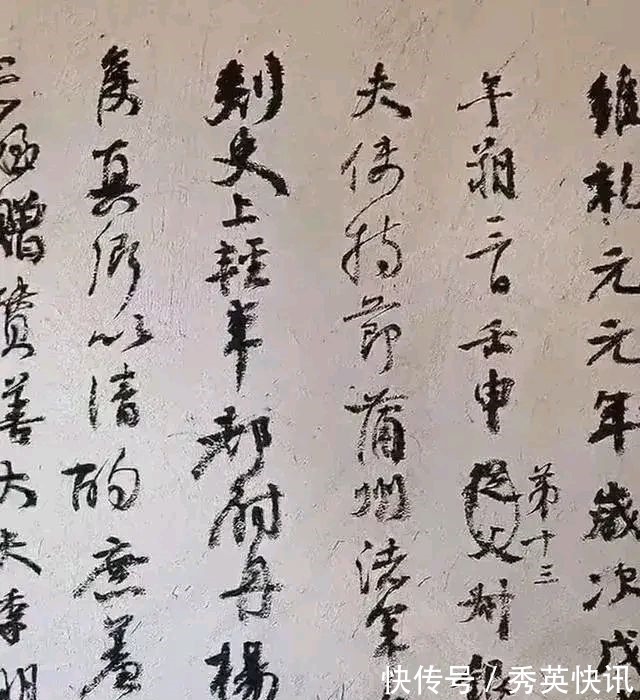 維乾元元年歲次戊
午朔三日壬申從父
第十三
夫使持節蒲州諸軍
刺史上輕車都尉丹楊
侯真卿以清酌庶羞
亡姪贈贊善大夫季明
快传号/秀英快讯